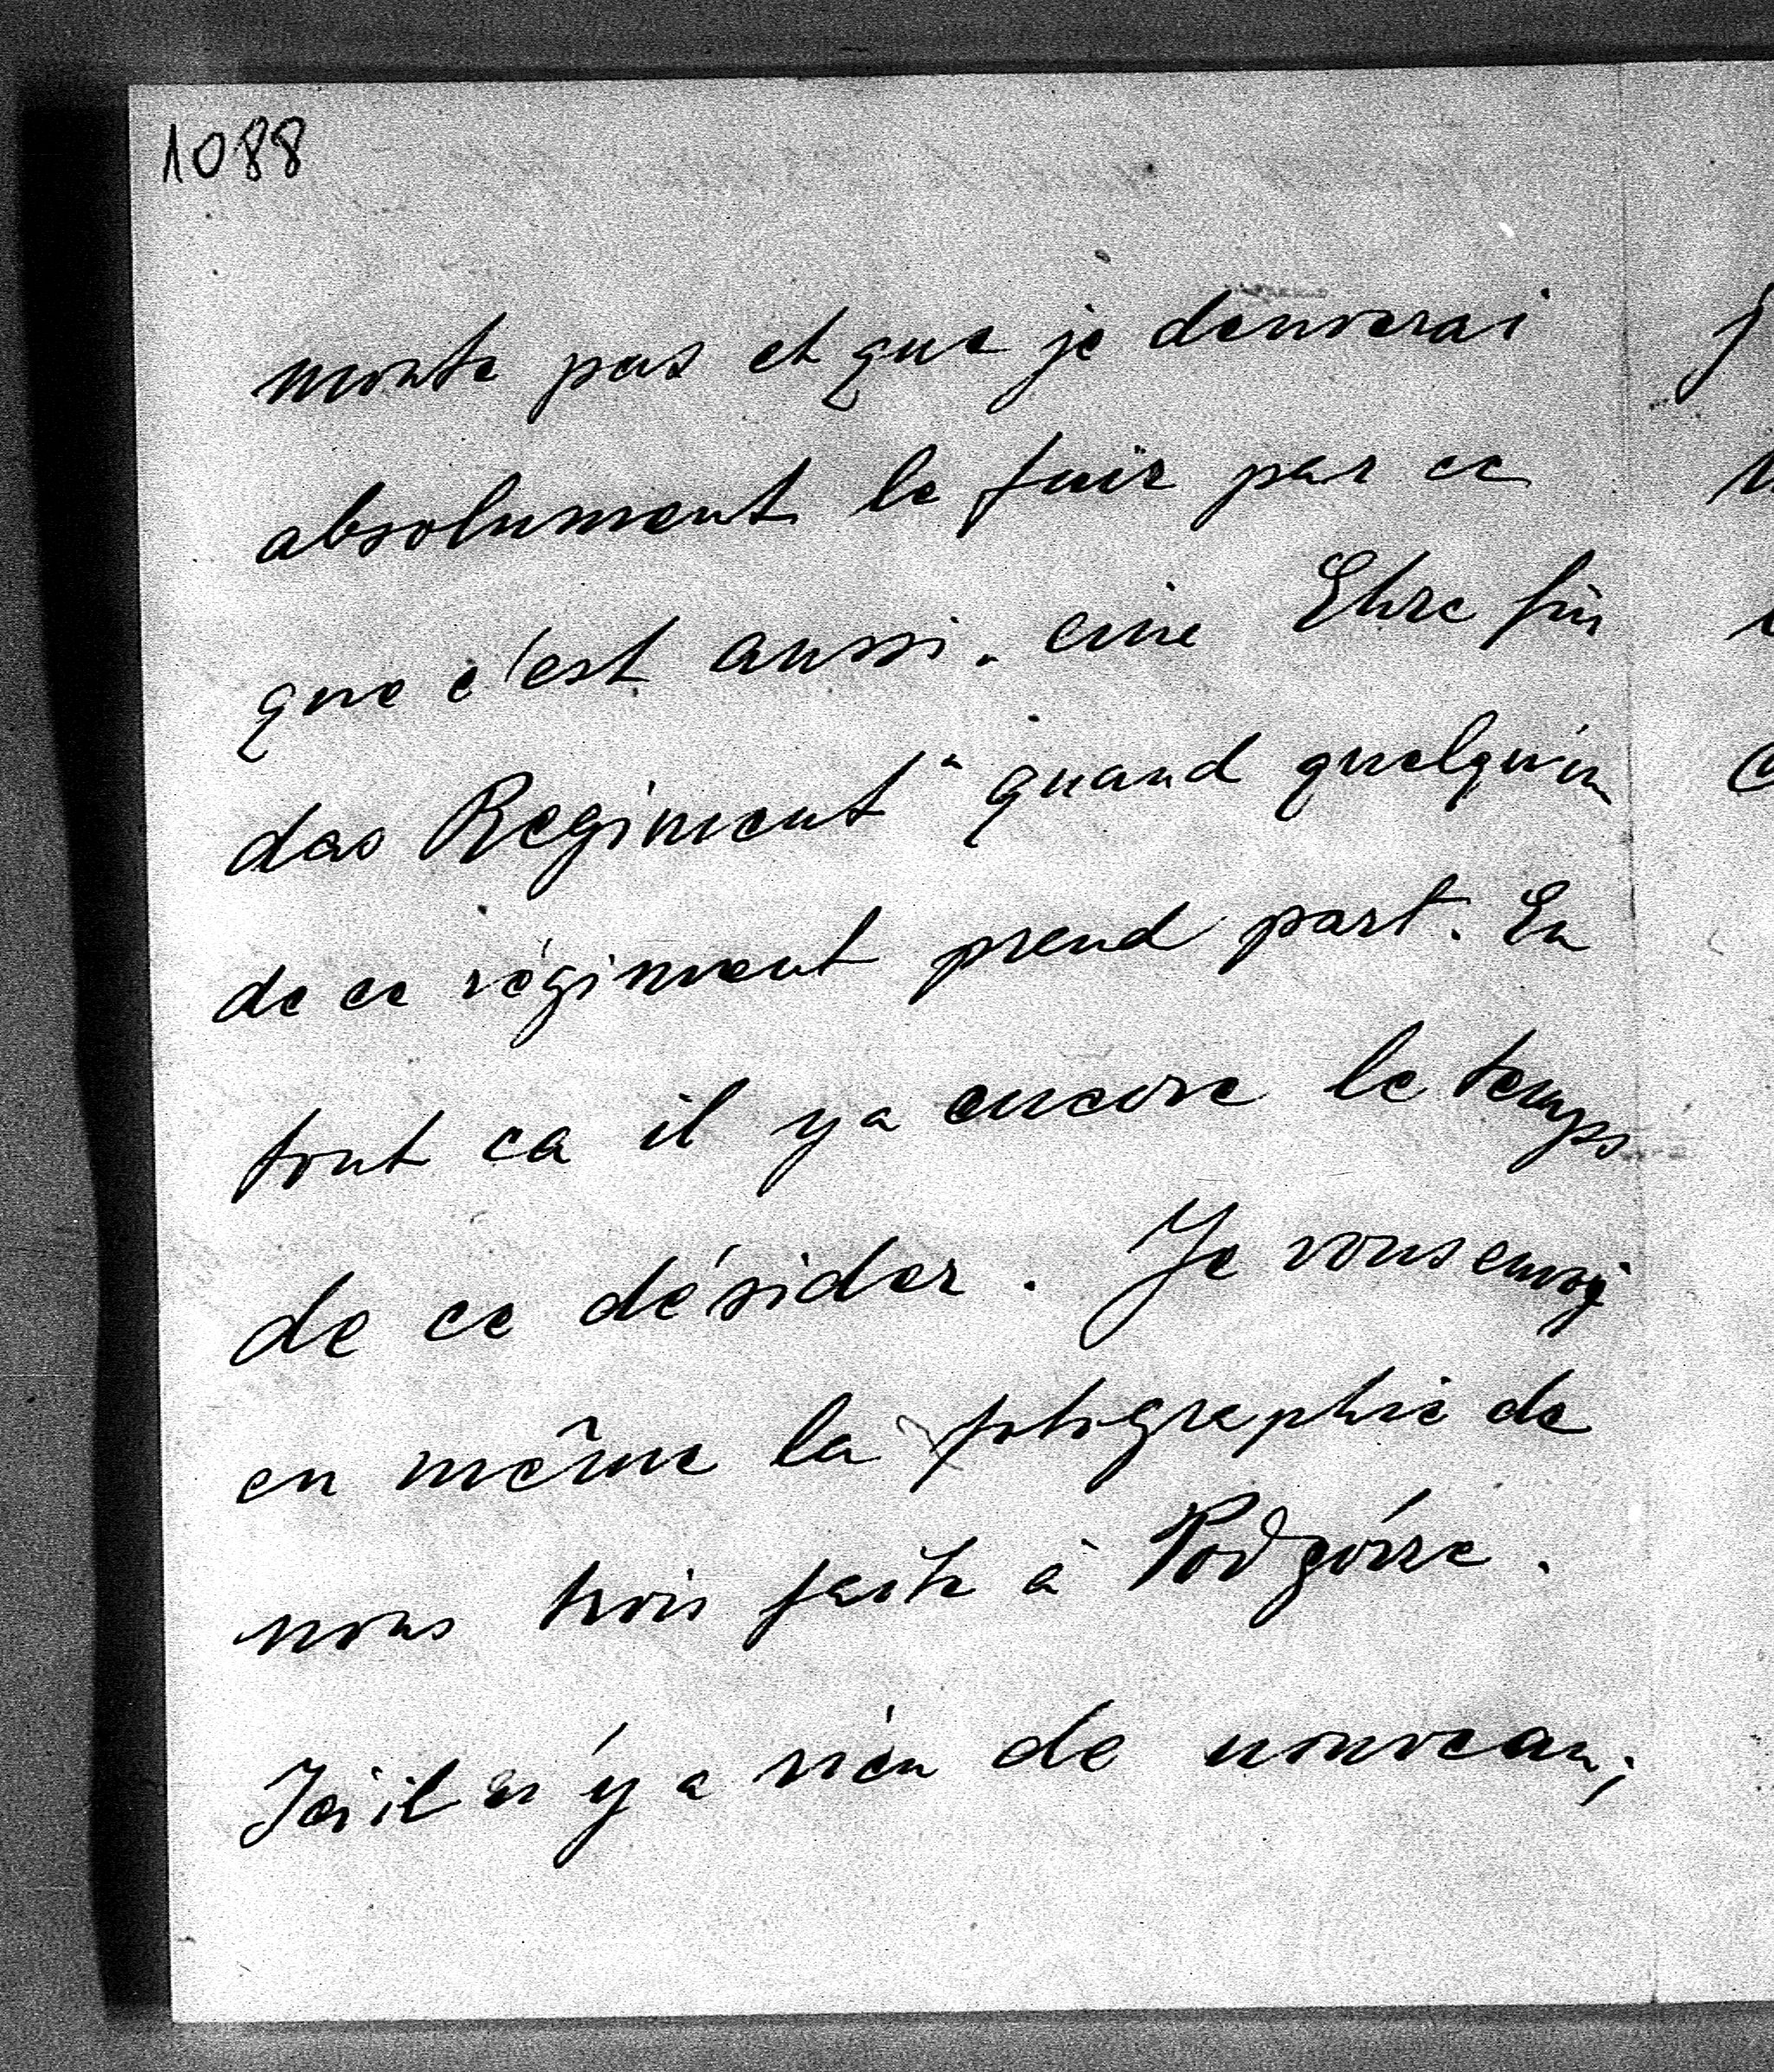 1088
monte pas et que je denverai
absolument le fair par ce
que c'est aussi „ eine Ehre für
das Regiment“ quand quelqu'un
de ce régiment prend part. En
tout ca il y a encore le temps
de ce désider. Je vous envoj
en même la fotographie de
nous trois faite à Podgórze.
Ici il n'y a rien de nouveau;